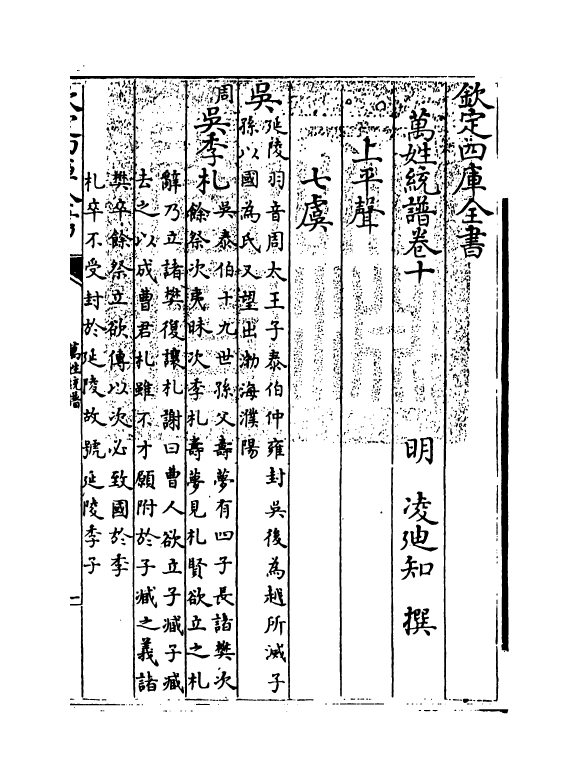 欽定四庫全書
萬姓統譜卷十
明 凌迪知 撰
上平聲
七虞
吳
延陵羽音周太王子泰伯仲雍封吳後為越所滅子
孫以國為氏又望出渤海濮陽
周
吳季札
吳泰伯十九世孫父壽夢有四子長諸樊次
餘祭次夷昧次季札壽夢見札賢欲立之札
辭乃立諸樊復讓札謝曰曹人欲立子臧子臧
去之以成曹君札雖不才願附於子臧之義諸
樊卒餘祭立欲傳以次必致國於季
札卒不受封於延陵故號延陵季子
萬姓統譜
一